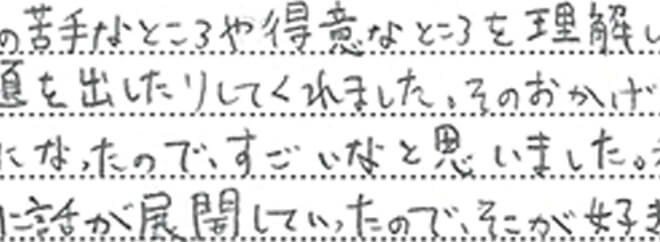 の苦手なところや得意なところを理解し
題を出したりしてくれました。そのおかげ
になったので、すごいなと思いました。
に話が展開していったので、そこが好き